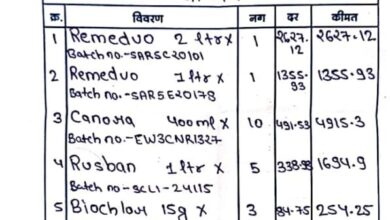 क्र. विवरण नग दर कीमत
1 Remeduo 2 ltr x 1 2627.12 2627.12
Batch no.-SAR5C20101
2 Remeduo 1 ltr x 1 1355.93 1355.93
Batch no.-SAR5E20178
3 Canova 400ml x 10 491.53 4915.3
Batch no.-EW3CNR1327
4 Rusban 1 ltr x 5 338.98 1694.9
Batch no-SCL1-24115
5 Biochlor 15g x 3 84.75 254.25